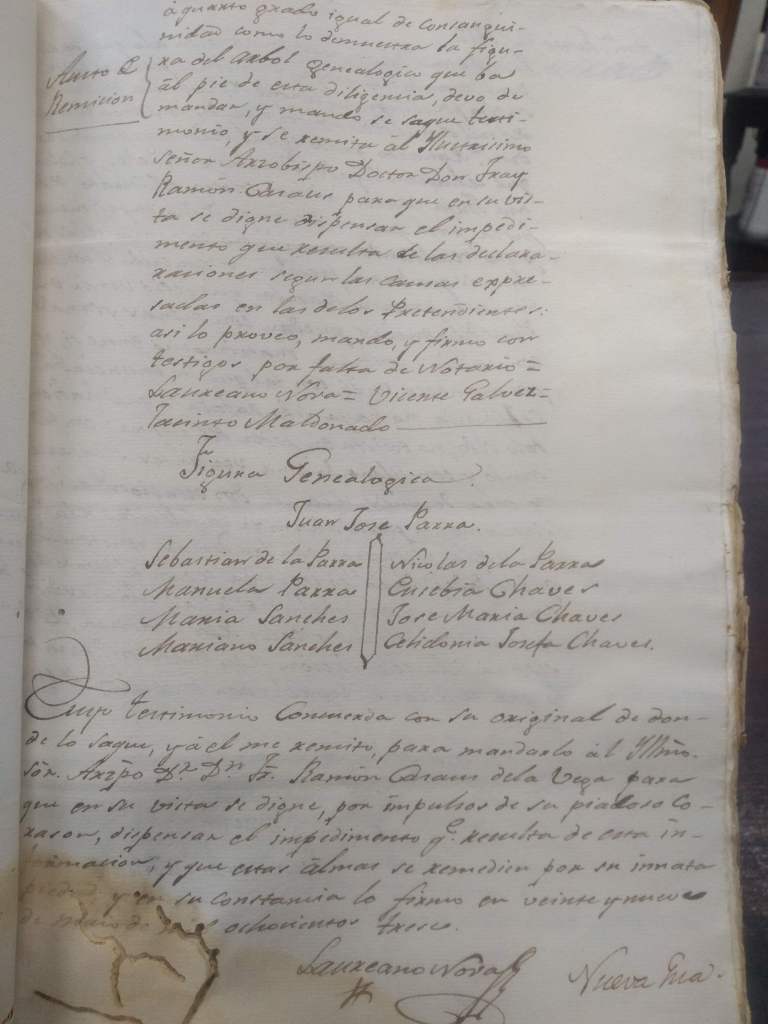 á quarto grado igual de consangui-
nidad como lo demuestra la figu-
ra del arbol genealogico que ba
ál pie de esta diligencia, devo de
Auto de
Remicion
mandar, y mando se saque testi-
monio, y se remita ál Yllustrisimo
señor Arzobispo Doctor Don Fray
Ramón Casaus para que en su vis-
ta se digne dispensar el impedi-
mento que resulta de las declara-
raciones segun las causas expre-
sadas en las delos Pretendientes:
asi lo proveo, mando, y firmo con
testigos por falta de Notario =
Laureano Nova = Vicente Galvez =
Jacinto Maldonado
Figura Genealogica.
Juan Jose Parra.
Sebastian de la Parra
Manuela Parra
Maria Sanches
Mariano Sanches
Nicolas dela Parra
Eusebia Chaves
Jose Maria Chaves
Celidonia Josefa Chaves.
Cuyo testimonio Concuerda con su original de don-
de lo saque, y á él me remito, para mandarlo ál Yllmõ.
Sõr. Arzp̃o Dr. Dn. Fr. Ramón Casaus dela Vega para
que en su vista se digne, por impulsos de su piadoso Co-
rason, dispensar el impedimento q.e resulta de esta in-
formacion, y que estas álmas se remedien por su innata
piedad y en su constancia lo firmo en veinte y nueve
de ochocientos trese.
Laureano Nova
Nueva Gua.